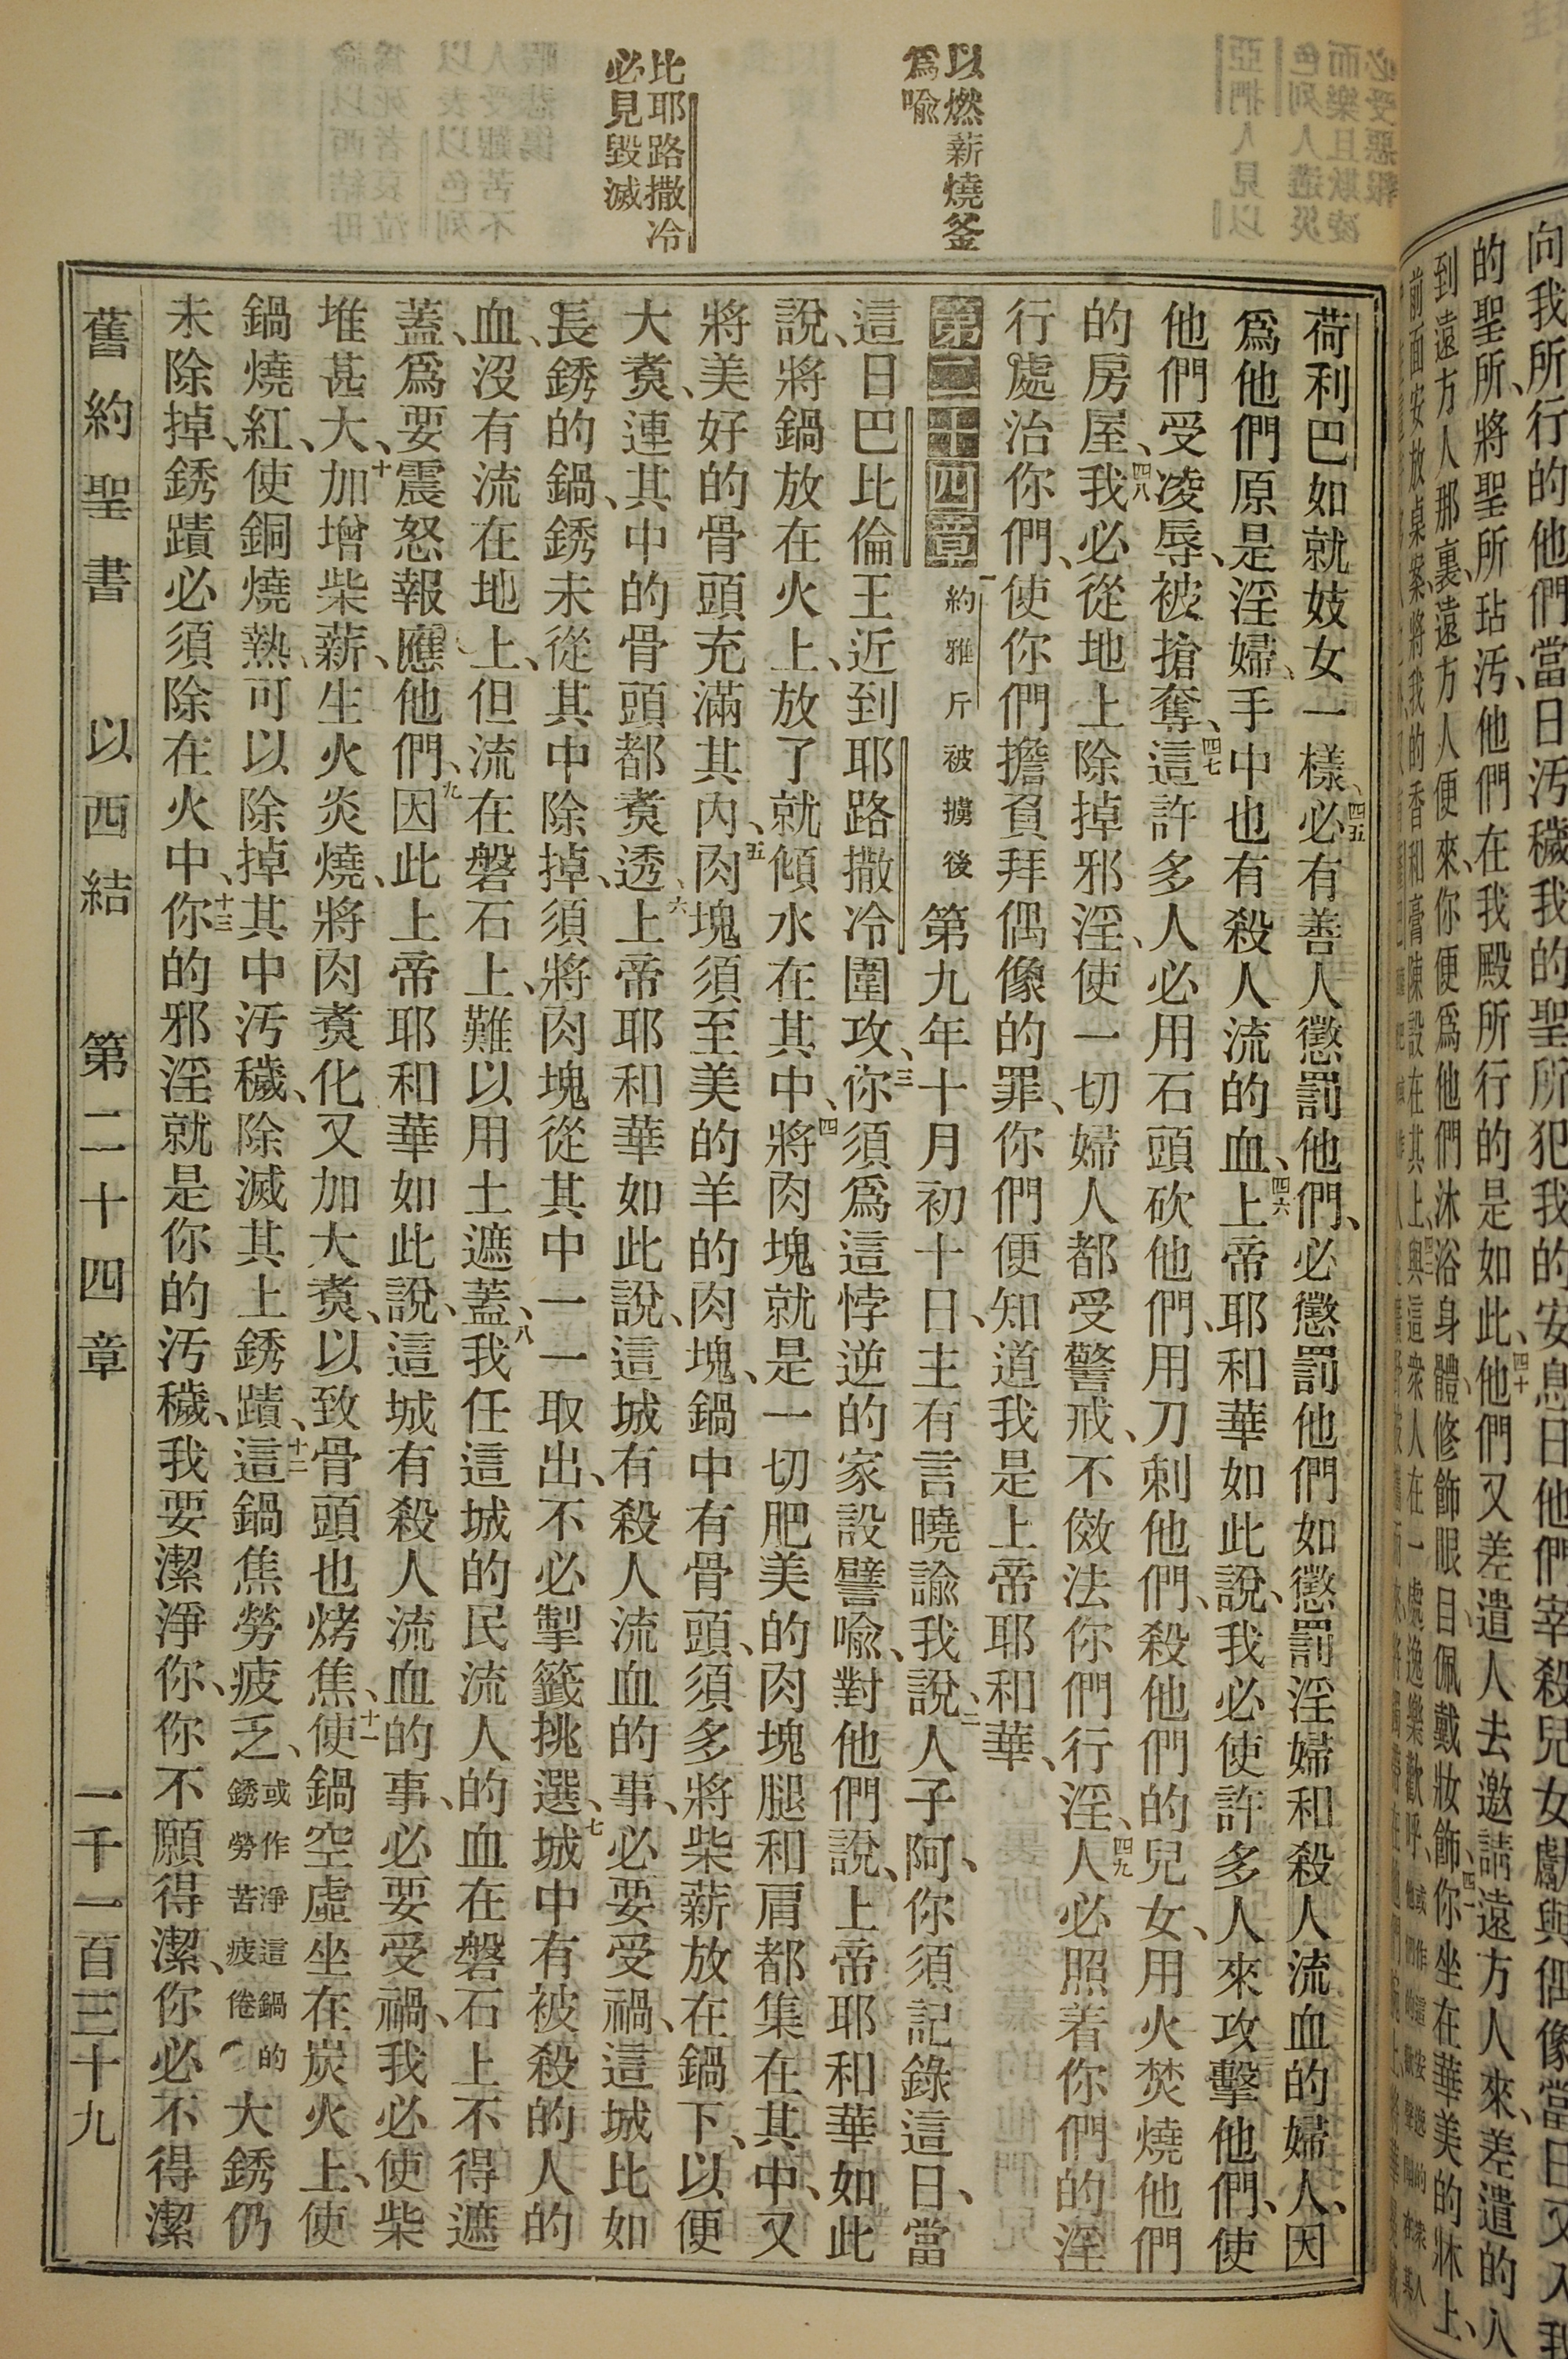 以燃薪燒釜
爲喩
比耶路撒冷
必見毀滅
荷利巴如就妓女一樣、四五必有善人懲罰他們、必懲罰他們如懲罰淫婦和殺人流血的婦人、因
爲他們原是淫婦、手中也有殺人流的血、四六上帝耶和華如此說、我必使許多人來攻擊他們、使
他們受凌辱、被搶奪、四七這許多人必用石頭砍他們、用刀刺他們、殺他們的兒女、用火焚燒他們
的房屋、四八我必從地上除掉邪淫、使一切婦人都受警戒、不傚法你們行淫、四九人必照着你們的淫
行處治你們、使你們擔負拜偶像的罪、你們便知道我是上帝耶和華、
第二十四章 一約雅斤被擄後第九年十月初十日、主有言曉諭我說、二人子阿、你須記錄這日、當
這日巴比倫王近到耶路撒冷圍攻、三你須爲這悖逆的家設譬喩、對他們說、上帝耶和華如此
說、將鍋放在火上、放了就傾水在其中、四將肉塊就是一切肥美的肉塊腿和肩都集在其中、又
將美好的骨頭充滿其內、五肉塊須至美的羊的肉塊、鍋中有骨頭、須多將柴薪放在鍋下、以便
大煑、連其中的骨頭都煑透、六上帝耶和華如此說、這城有殺人流血的事、必要受禍、這城比如
長銹的鍋、銹未從其中除掉、須將肉塊從其中一一取出、不必掣籤挑選、七城中有被殺的人的
血、沒有流在地上、但流在磐石上、難以用土遮蓋、八我任這城的民流人的血在磐石上不得遮
蓋、爲要震怒報應他們、九因此上帝耶和華如此說、這城有殺人流血的事、必要受禍、我必使柴
堆甚大、十加增柴薪、生火炎燒、將肉煑化又加大煑、以致骨頭也烤焦、十一使鍋空虛坐在炭火上、使
鍋燒紅、使銅燒熱、可以除掉其中汚穢、除滅其上銹蹟、十二這鍋焦勞疲乏、或作淨這鍋的銹勞苦疲倦大銹仍
未除掉、銹蹟必須除在火中、十三你的邪淫就是你的汚穢、我要潔淨你、你不願得潔、你必不得潔
舊約聖書 以西結 第二十四章 一千一百三十九
向我所行的他們當日汚穢我的聖所犯我的安息日他們宰殺兒女獻與偶像當日又入我
的聖所、將聖所玷汚、他們在我殿所行的是如此、四十他們又差遣人去邀請遠方人來、差遣的人
到遠方人那裏、遠方人便來、你便爲他們沐浴身體、修飾眼目、佩戴妝飾、四一你坐在華美的牀上、